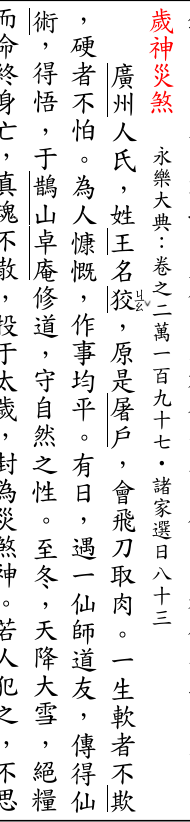 歲神災煞
永樂大典：卷之二萬一百九十七・諸家選日八十三
廣州人氏，姓王名狡ㄐㄧㄠˇ，原是屠戶，會飛刀取肉。一生軟者不欺
，硬者不怕。為人慷慨，作事均平。有日，遇一仙師道友，傳得仙
術，得悟，于鵲山卓庵修道，守自然之性。至冬，天降大雪，絕糧
而命終身亡，真魂不散，投于太歲，封為災煞神。若人犯之，不思